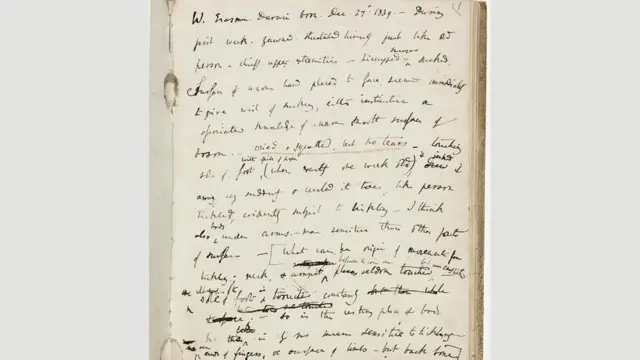 (1
W. Erasmus. Darwin born. Dec. 27th 1839. — During
first week. yawned, streatched himself just like old
person — chiefly upper extremities — hiccupped — sneezes sucked.
Surface of warm hand placed to face, seemed immediately
to give wish of sucking, either instinctive or
associated knowledge of warm smooth surface of
bosom. — cried & squalled, but no tears — touching
sole of foot with spill of paper, (when exactly one week old), it jerked it
away very suddenly & curled its toes, like person
tickled, evidently subject to tickling — I think
also body under arms. — more sensitive than other parts
of surface — [What can be origin of movement from
tickling; neck, & armpit between the toes are places seldom touched
sole of foot is touched constantly but the whole
surface: — so is the resting place of body.
in of nos means sensitive to tickling —
ends of fingers, or surface of limbs — but back bone